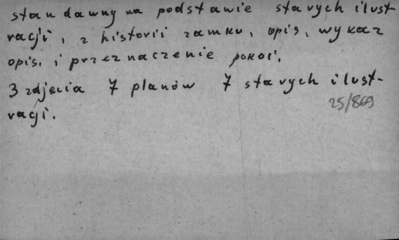 stan dawny na podstawie starych ilust
racji, z historii zamku, opis, wykaz
opis, i przeznaczenie pokoi.
3 zdjęcia 7 planów 7 starych ilust-
racji.
25/869